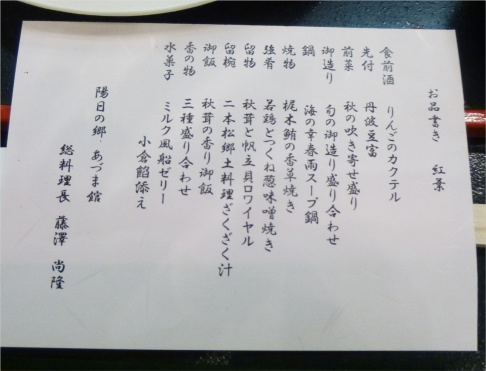 お品書き 紅葉
食前酒 りんごのカクテル
先付 丹波豆富
前菜 秋の吹き寄せ盛り
御造り 旬の御造り盛り合わせ
鍋 海の幸春雨スープ鍋
焼物 梶木鮪の香草焼き
強肴 若鶏とつくね葱味噌焼き
留物 秋茸と帆立貝ロワイヤル
留椀 二本松郷土料理ざくざく汁
御飯 秋茸の香り御飯
香の物 三種盛り合わせ
水菓子 ミルク風船ゼリー
小倉餡添え
陽日の郷 あづま館
総料理長 藤澤 尚隆